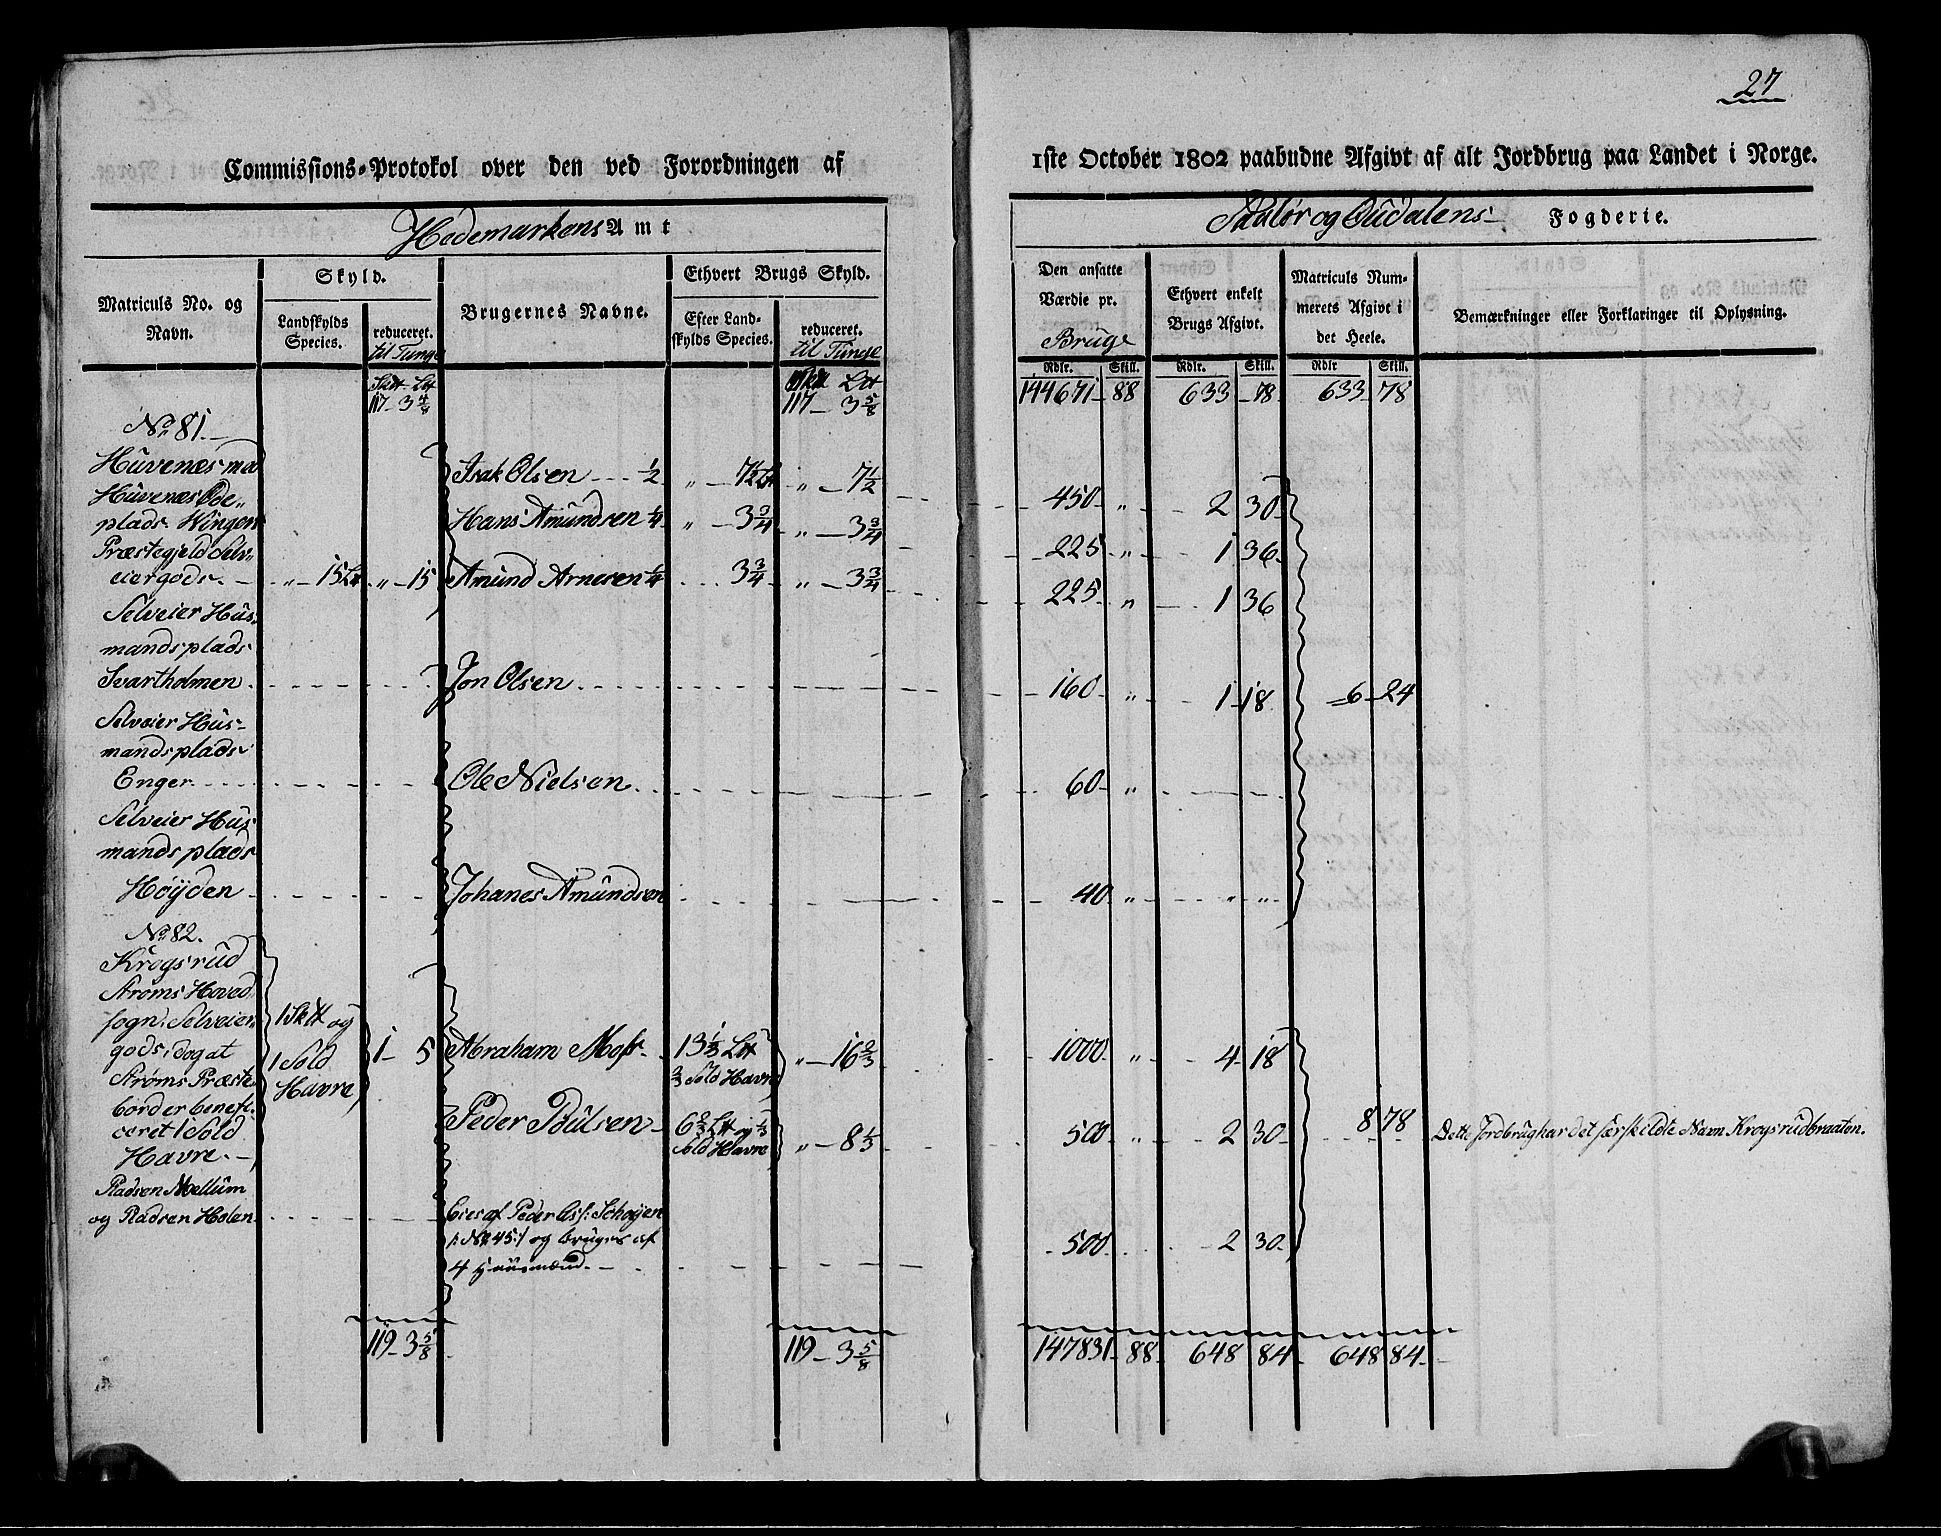 27
Commissions-Protokol over den ved Forordningen af
1ste October 1802 paabudne Afgivt af alt Jordbrug paa Landet i Norge.
Hedemarkens Amt
Soløer og Oudalens Fogderie.
Matriculs No. og Navn.
Skyld.
Landskylds Species.
reduceret. til Tunge
Brugernes Navne.
Ethvert Brugs Skyld.
Efter Landskylds Species.
reduceret. til Tunge
Den ansatte Værdie pr. Bruge
Ethvert enkelt Brugs Afgivt.
Matriculs Nummerets Afgivt i det Heele.
Bemærkninger eller Forklaringer til Oplysning.
Rdlr. Skill. Rdlr. Skill. Rdlr Skill.
117 - 3 5/8 117 - 3 5/8 144671 - 88 633 - 78 633 - 78
No. 81.
Huvenæs med
Huvenæs Øde-
plads Winger
Præstegjeld Selv-
eiergods. „ - 15 Lt „ - 15
Isak Olsen 1/2 „ - 7 1/2 Lt „ - 7 1/2 450 „ 2 30
Hans Amundsen 1/4 „ - 3 3/4 „ - 3 3/4 225 „ 1 36
Amund Arnesen 1/4 3 3/4 „ - 3 3/4 225 „ 1 36
Selveier Hus-
mandsplads
Svartholmen Jon Olsen 160 „ 1 18 6 - 24
Selveier Hus-
mandsplads
Enger Ole Nielsen 60 „
Selveier Hus
mandsplads
Høyden Johanes Amundsen 40 „ „ „
No. 82.
Krogsrud
Strøms Hoved
sogn, Selveier
gods, dog at
Strøms Præste
bord er benefi-
ceret 1 Sold
Havre.
1 Skt og
1 Sold
Havre
1 - 5
Abraham Moss 13 1/3 Lt
2/3 Sold Havre „ - 16 2/3 1000 „ 4 18
Peder Poulsen 6 2/3 Lt og 1/3
Sold Havre „ - 8 1/3 500 „ 2 30 8 78 Dette Jordbrug har det særskildte Navn Krogsrudbraaten.
Radsen Mellum
og Radsen Holen
eies af Peder Schøyen
/: No. 45 :/ og bruges af
4 Huusmænd. 500 2 30
119 - 3 5/8 119 - 3 5/8 147831 - 88 648 84 648 84